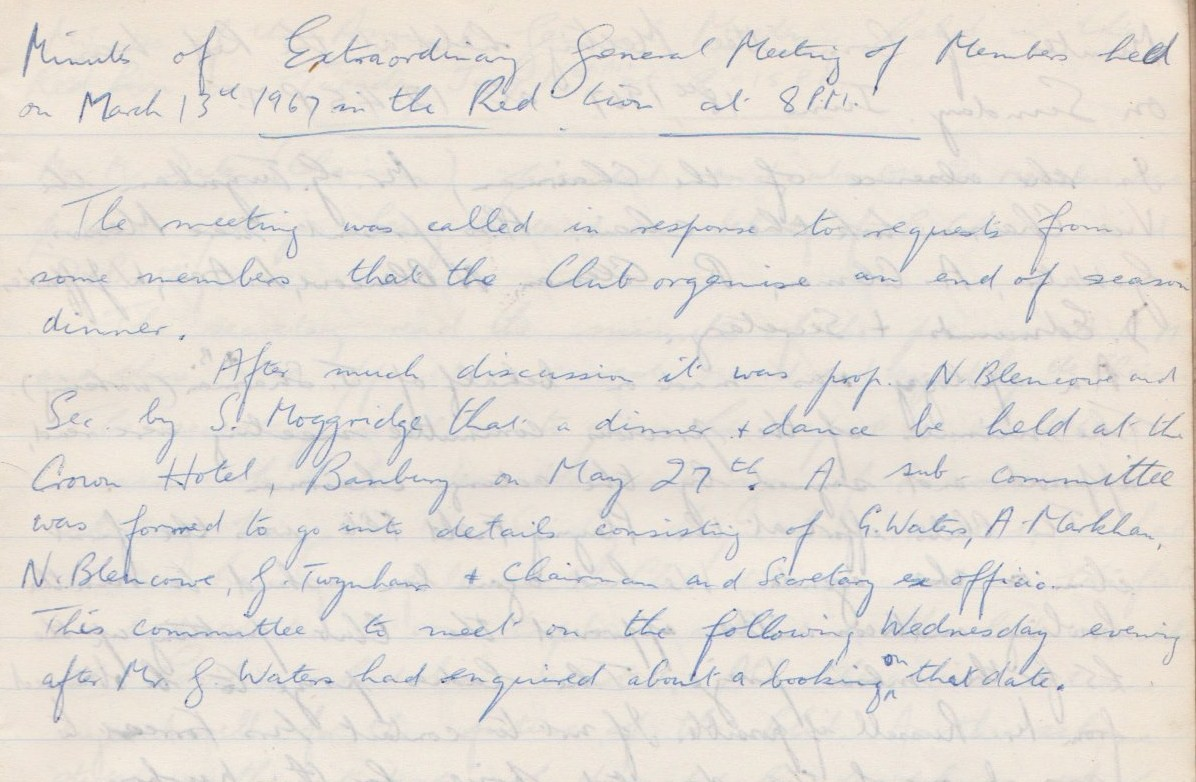 Minutes of Extraordinary General Meeting of Members held
on March 13th 1967 in the Red Lion at 8 P.M.
The meeting was called in response to requests from
some members that the Club organise an end of season
dinner.
After much discussion it was prop. N. Blencowe and
Sec. by S. Moggridge that a dinner + dance be held at the
Crown Hotel, Banbury on May 27th. A sub-committee
was formed to go into details consisting of G. Waters, A. Markham,
N. Blencowe, G. Twynham + Chairman and Secretary ex officio.
This committee to meet on the following Wednesday evening
after Mr. G. Waters had enquired about a booking on that date.